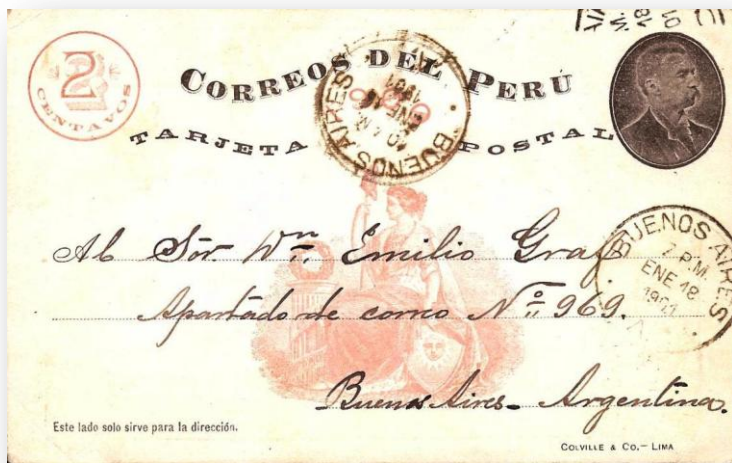 2
CENTAVOS
CORREOS DEL PERÚ
TARJETA POSTAL
BUENOS AIRES
10 A.M.
ENE 18
1901
BUENOS AIRES
7 P.M.
ENE 18
1901
Al Sör. Wm. Emilio Graf
Apartado de correo Nº 969.
Buenos Aires - Argentina.
Este lado solo sirve para la dirección.
COLVILLE & CO. - LIMA